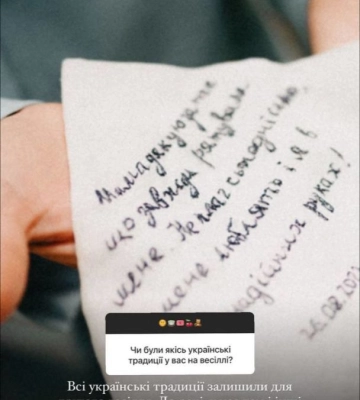 Мама дякую за те
що завжди рятувала
мене. Не плач сьогоднісько.
мене люблять і я в
надійних руках!
26.08.202
Чи були якісь українські
традиції у вас на весіллі?
Всі українські традиції залишили для